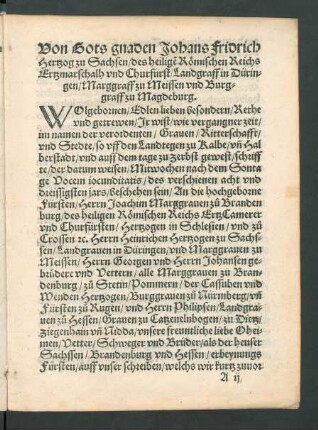 Von Gots gnaden Johans Fridrich
Hertzog zu Sachsen/des heiligē Römischen Reichs
Ertzmarschalh vnd Churfürst/Landgraff in Düringen/
Marggraff zu Meissen vnd Burggraff
zu Magdeburg.
WOlgebornen/Edlen lieben besondern/Rethe
vnd getrewen/Ir wist/wie vergangner zeit/
im namen der verordenten/Grauen/Ritterschafft/
vnd Stedte/so vff den Landtegen zu Kalbe/vñ Halberstadt/
vnd auff dem tage zu Zerbst gewest/schriffte/
der datum weisen/Mitwochen nach dem Sontage
Vocem iocunditatis/des verschienen acht vnd
dreissigsten jars/bescheben sein/An die hochgeborne
Fürsten/Herrn Joachim Marggrauen zů Brandenburg/
des heiligen Römischen Reichs ErtzCamerer
vnd Churfürsten/Hertzogen in Schlesien/vnd zů
Crossen ꝛc. Herrn Heinrichen Hertzogen zu Sachssen/
Landgrauen in Düringen/vnd Marggrauen zu
Meissen/Herrn Georgen vnd Herrn Johansen gebrüdere
vnd Vettern/alle Marggrauen zu Brandenburg/
zů Stetin/Pommern/der Cassuben vnd
Wenden Hertzogen/Burggrauen zů Nürmberg/vñ
Fürsten zů Rugen/vnd Herrn Philipsen/Landgrauen
zů Hessen/Grauen zu Catzenelnbogen/zu Dietz/
Ziegenhain vñ Nidda/vnsere freuntliche liebe Oheimen/
Vetter/Schweger vnd Brüder/als der heuser
Sachssen/Brandenburg vnd Hessen/erbeynungs
Fürsten/auff vnser schreiben/welchs wir kurtz zuuor
A ij